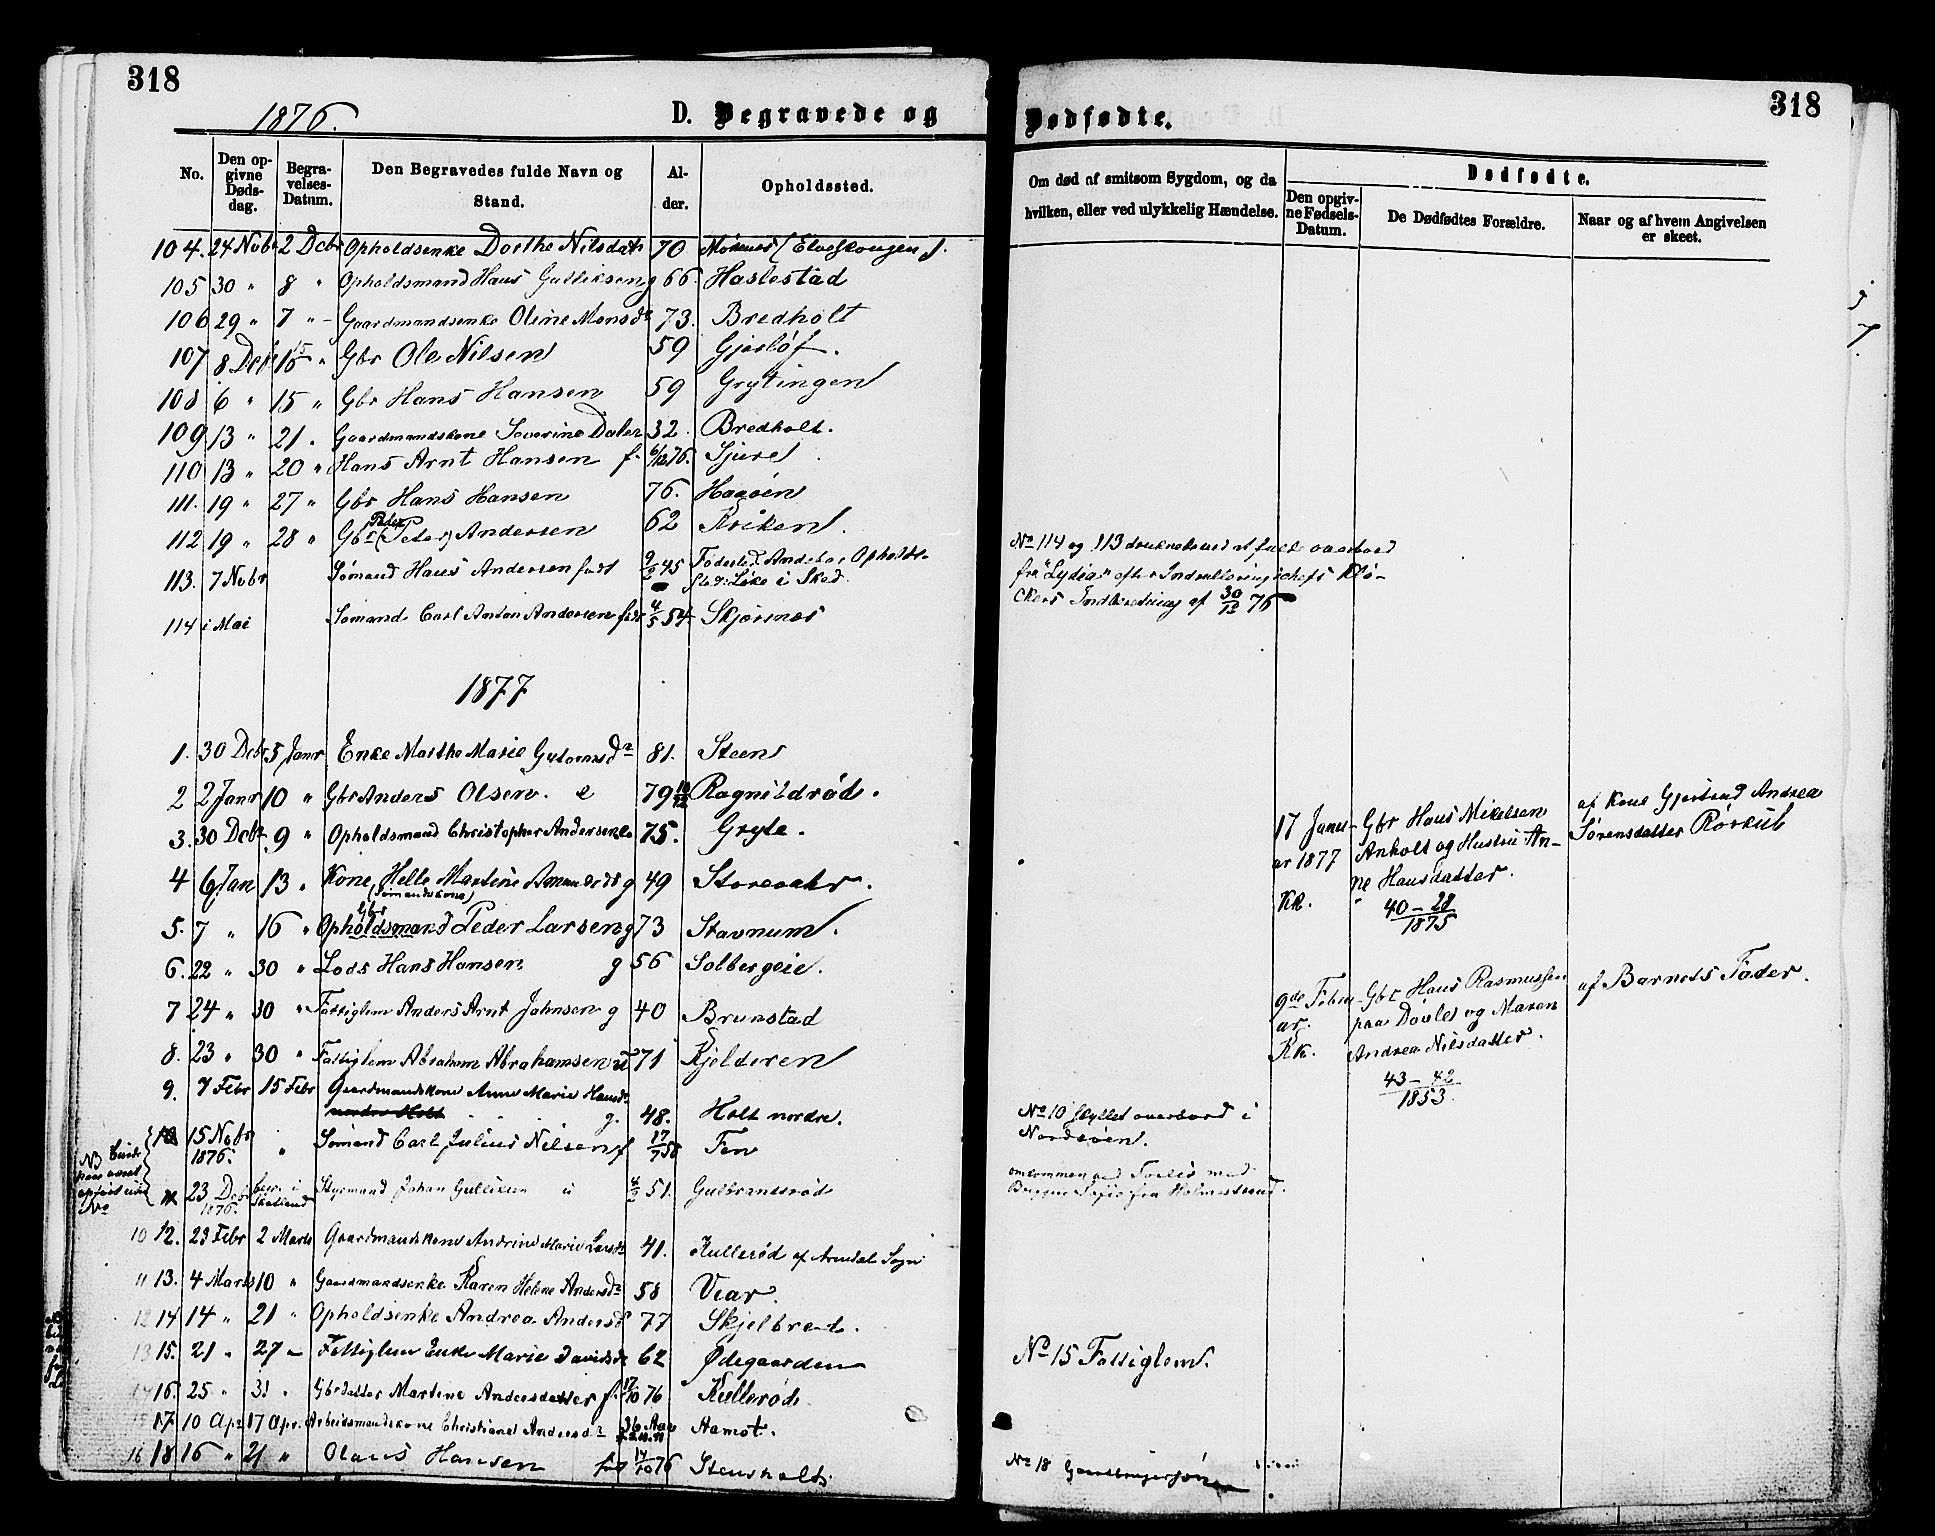 318
1876.
D. Begravede og
No. Den opgivne Dødsdag. Begravelses-Datum. Den Begravedes fulde Navn og Stand. Alder. Opholdssted.
104. 24 Nobr 2 Dcbr Opholdsenke Dorthe Nilsdatr 70
105 30 " 8 " Opholdsmand Hans Gulliksen g 66. Haslestad
106 29 " 7 " Gaardmandsenke Oline Monsdr 73. Bredholt
107 8 Dcbr 15 " Gbr Ole Nilsen 59 Gjerløf.
108 6 " 15 " Gbr Hans Hansen 59 Grytingen
109 13 " 21 . Gaardmandskone Severine Daler 32. Bredholt.
110 13 " 20 " Hans Arnt Hansen f. 6/12 76. Sjure
111. 19 " 27 " Gbr Hans Hansen 76. Haaøen
112 19 " 28 " Gbr Peder (Peter) Andersen 62 Kriken.
113. 7 Nobr Sømand Hans Andersen født 2/2 45 Fødested Andebo Opholdssted: Like i Sked
114 i Mai Sømand Carl Anton Andersen født 4/5 54 Skjærsnes
1877
1. 30 Dcbr 5 Janr Enke Marthe Marie Gutormsdr 81. Steen
2 2 Janr 10 " Gbr Anders Olsen. e 79 10/12 Ragnildrød.
3. 30 Dcbr. 9 " Opholdsmand Christopher Andersen e 75. Gryte.
4 6 Jan 13 " Kone Helle Martine Amundsdr g 49 Storevahr.
(Sømandskone)
5. 7 " 16 " Gbr Opholdsmand Peder Larsen g 73 Stavnum.
6. 22 " 30 " Lods Hans Hansen g 56 Solbergeie.
7 24 " 30 " Fattiglem Anders Arnt Johnsen g 40 Brunstad
8. 23 " 30 " Fattiglem Abraham Abrahamsen u 71 Kjelderen
9. 7 Febr 15 Febr Gaardmandskone Anne Marie Hansdr
nordre Holt g. 48. Holt nordre.
10 15 Nobr 1876. " Sømand Carl Julius Nilsen f 17/7 58 Fen
11 23 Dcbr 1876. begr. i Skotland Styrmand Johan Gulliksen u 4/2 51. Gulbrandsrød
10 12. 23 Febr 2 Marts Gaardmandskone Andrine Marie Larsdr 41. Kullerød af Arendal Sogn
11 13. 4 Marts 10 " Gaardmandsenke Karen Helene Andersdr 58 Vear.
12 14 14 " 21 " Opholdsenke Andrea Andersdr 77 Skjelbred.
13 15. 21 " 27 " Fattiglem Enke Marie Davidsdr 62 Ødegaarden
14 16. 25 " 31 " Gbrdatter Martine Andersdatter f. 17/10 76 Kullerød
15 17. 10 Apr 17 Apr. Arbeidsmandskone Christiane Andersdr 36 Aar Aamot.
16 18 16 " 21 " Olaus Hansen født 14/10 76 Stensholt
318
Dødfødte.
Om død af smitsom Sygdom, og da hvilken, eller ved ulykkelig Hændelse. Dødfødte. Den opgivne Fødsels-Datum. De Dødfødtes Forældre. Naar og af hvem Angivelsen er skeet.
No 114 og 113 druknede ved at falde overbord
fra "Lydia" efter Indrulleringschefs Klø-
ckers Indberetning af 30/12 76
17 Janu- Gbr Hans Mikelsen af Kone Gjertrud Andrea
ar 1877 Anholt og Hustru An- Sørensdatter Rørkul
ne Hansdatter.
KK. " 40 - 28
1875
9de Febru- Gbr Hans Rasmussen af Barnets Fader.
ar. paa Døvle og Maren
KK. Andrea Nilsdatter.
43 - 42
1853
No 10 skyllet overbord i
Nordsøen.
omkommen ved Forlis med
Briggen Sofie fra Holmestrand.
No 15 Fattiglem.
No 18 Gaardbrugersøn